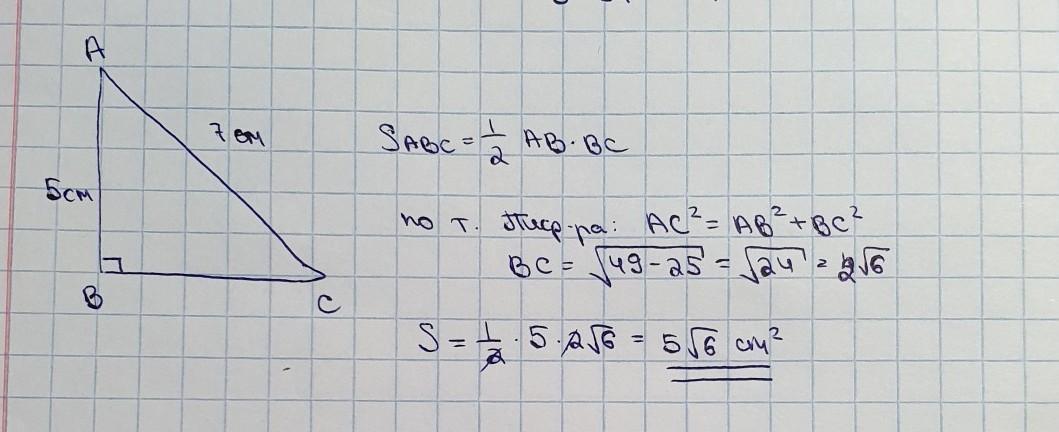 A
7 см
5см
B
C
SABC = 1/2 AB · BC
по т. Пиф-ра: AC² = AB² + BC²
BC = √49-25 = √24 = 2√6
S = 1/2 · 5 · 2√6 = 5√6 см²